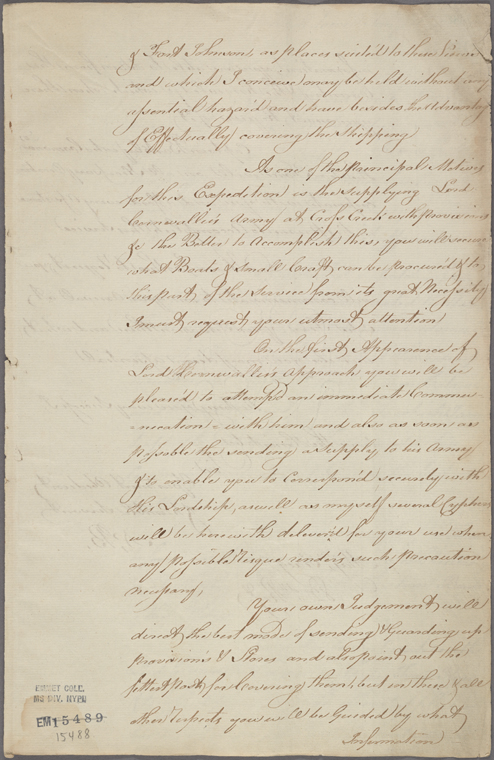 & Fort Johnson, as places suited to these Views
and which I conceive may be held without any
essential hazard and have besides the Advantage
of Effectually covering the Shipping
As one of the Principal Motives
for this Expedition is the Supplying Lord
Cornwallis's Army at Cross Creek with provisions
&c the Better to Accomplish this, you will secure
what Boats & Small Craft can be procured & to
this part of the Service from its great Necessity
I must request your utmost attention
On the first Appearence of
Lord Cornwallis's Approach you will be
pleased to attempt an immediate Commu-
-nication with him and also as soon as
possable the sending a Supply to his Army
& to enable you to Correspond securely with
His Lordship, as well as myself several Cyphers
will be herewith deliver'd for your use when
any possible risque renders such precaution
necessary,
Your own Judgement will
direct the best mode of sending & Guarding up
provisions & Stores and also point out the
fittest post for Covering them, but in these & all
other respects you will be Guided by what
Information
EMMET COLL.
MS DIV. NYPL
EM 15489
15488